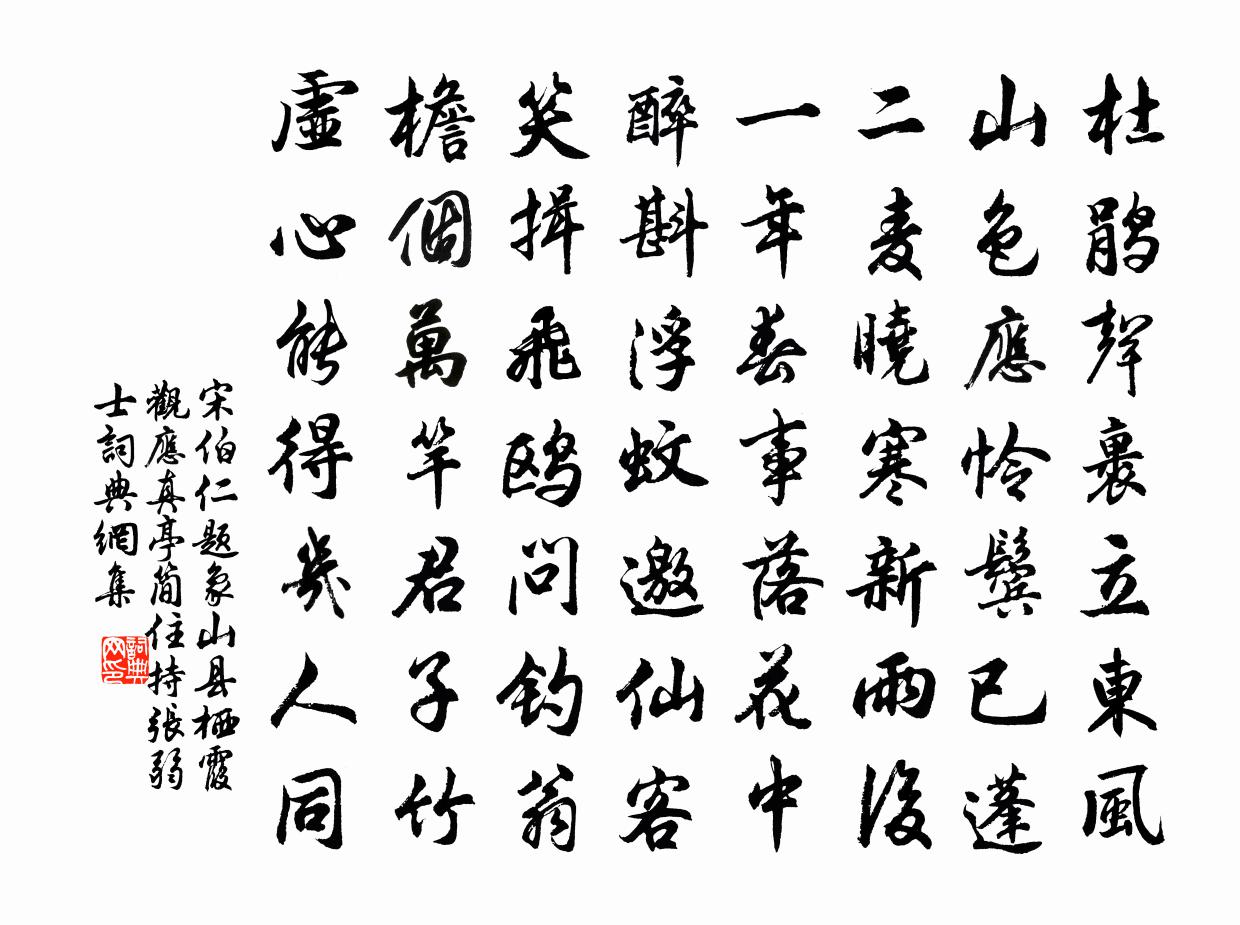 杜鹃聲裏立東風
山色應怜鬓已蓬
二麦曉寒新雨後
一年春事落花中
醉斟浮蚁邀仙客
笑揖飛鸥問钓翁
檐個萬竿君子竹
虛心能得幾人同
宋伯仁题象山县栖霞
觀應真亭简住持張弱
士詞典網集
詞典网印